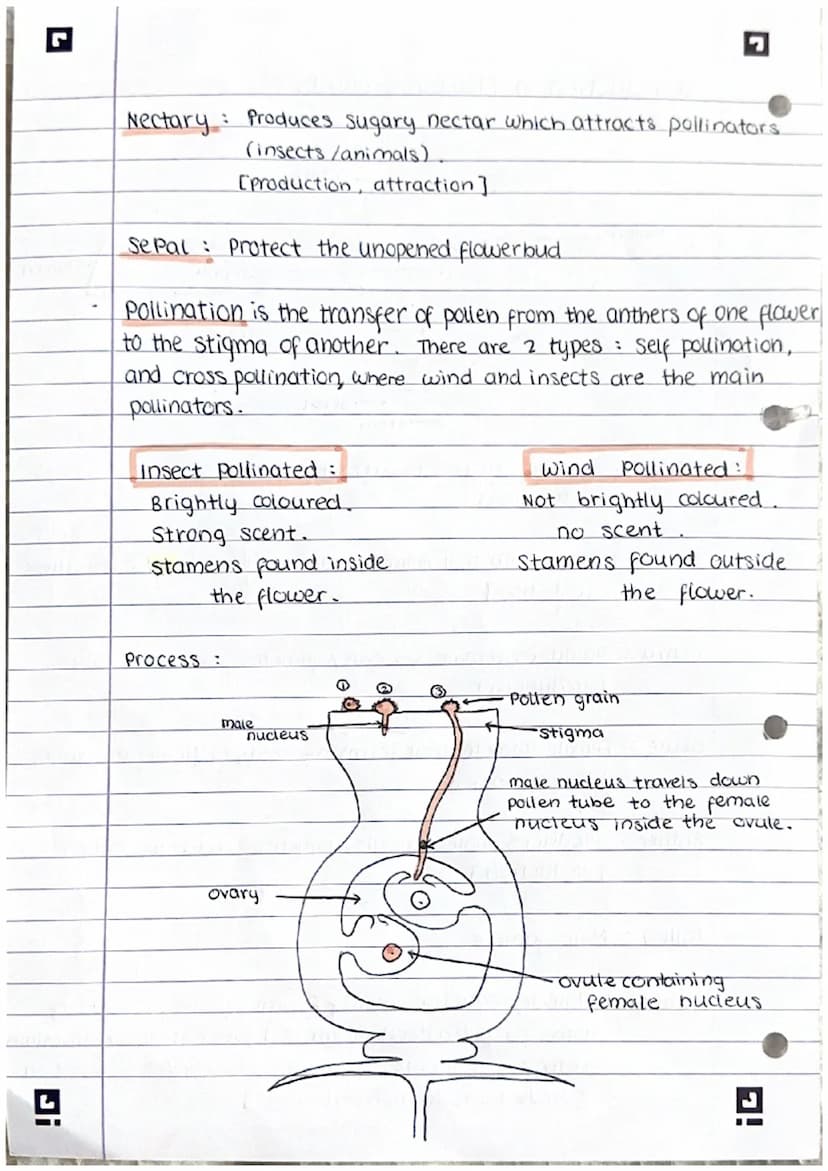 Nectary : Produces sugary nectar which attracts pollinators
(insects/animals).
[production, attraction]
Sepal : Protect the unopened flowerbud
Pollination is the transfer of pollen from the anthers of one flower
to the stigma of another. There are 2 types : Self pollination,
and cross pollination, where wind and insects are the main
pollinators.
Insect pollinated :
Brightly coloured.
Strong scent.
Stamens found inside
the flower.
Wind pollinated :
Not brightly coloured.
no scent.
Stamens found outside
the flower.
Process :
1 2 3
Pollen grain
male
nucleus
stigma
male nucleus travels down
pollen tube to the female
nucleus inside the ovule.
ovary
ovule containing
female nucleus